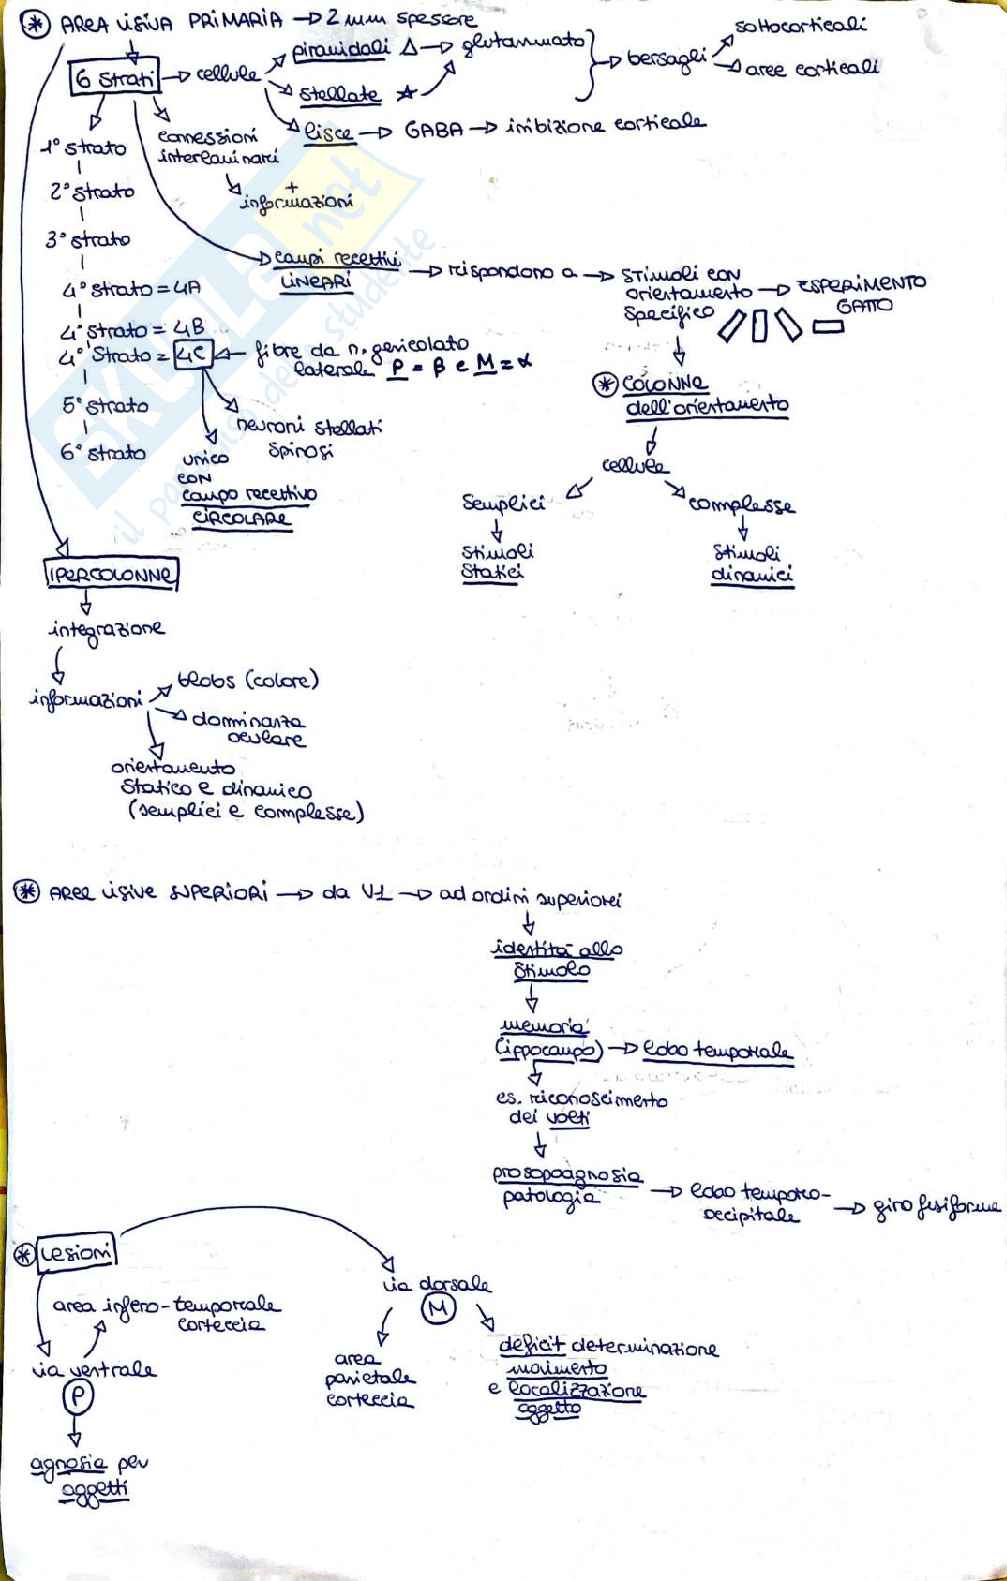 * AREA VISIVA PRIMARIA → 2 mm spessore
6 strati → cellule
piramidali △ → glutammato
stellate ☆
lisce → GABA → inibizione corticale
→ bersagli
sottocorticali
aree corticali
connessioni
interlaminari
+
informazioni
1° strato
2° strato
3° strato
4° strato = 4A
4° strato = 4B
4° strato = 4C ← fibre da n. genicolato
laterale P = β e M = α
5° strato
6° strato
neuroni stellati
spinosi
unico
con
campo recettivo
CIRCOLARE
campi recettivi
LINEARI
→ rispondono a → stimoli con
orientamento
specifico
→ ESPERIMENTO
GATTO
* COLONNE
dell'orientamento
cellule
semplici
stimoli
statici
complesse
stimoli
dinamici
IPERCOLONNE
integrazione
informazioni
blobs (colore)
dominanza
oculare
orientamento
statico e dinamico
(semplici e complesse)
* AREE VISIVE SUPERIORI → da V1 → ad ordini superiori
identità allo
stimolo
memoria
(ippocampo) → lobo temporale
es. riconoscimento
dei volti
prosopoagnosia
patologia
→ lobo temporo-
occipitale
→ giro fusiforme
* Lesioni
area infero-temporale
corteccia
via ventrale
P
agnosia per
oggetti
via dorsale
M
area
parietale
corteccia
deficit determinazione
movimento
e localizzazione
oggetto
SKUOLA.net
il paradiso dello studente